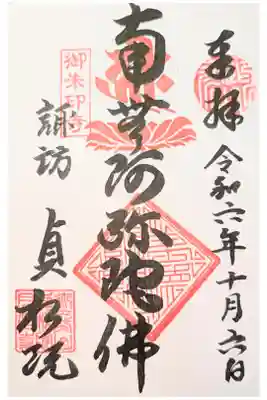 奉拝
令和六年十月六日
南無阿弥陀佛
御朱印
諏訪
貞松院